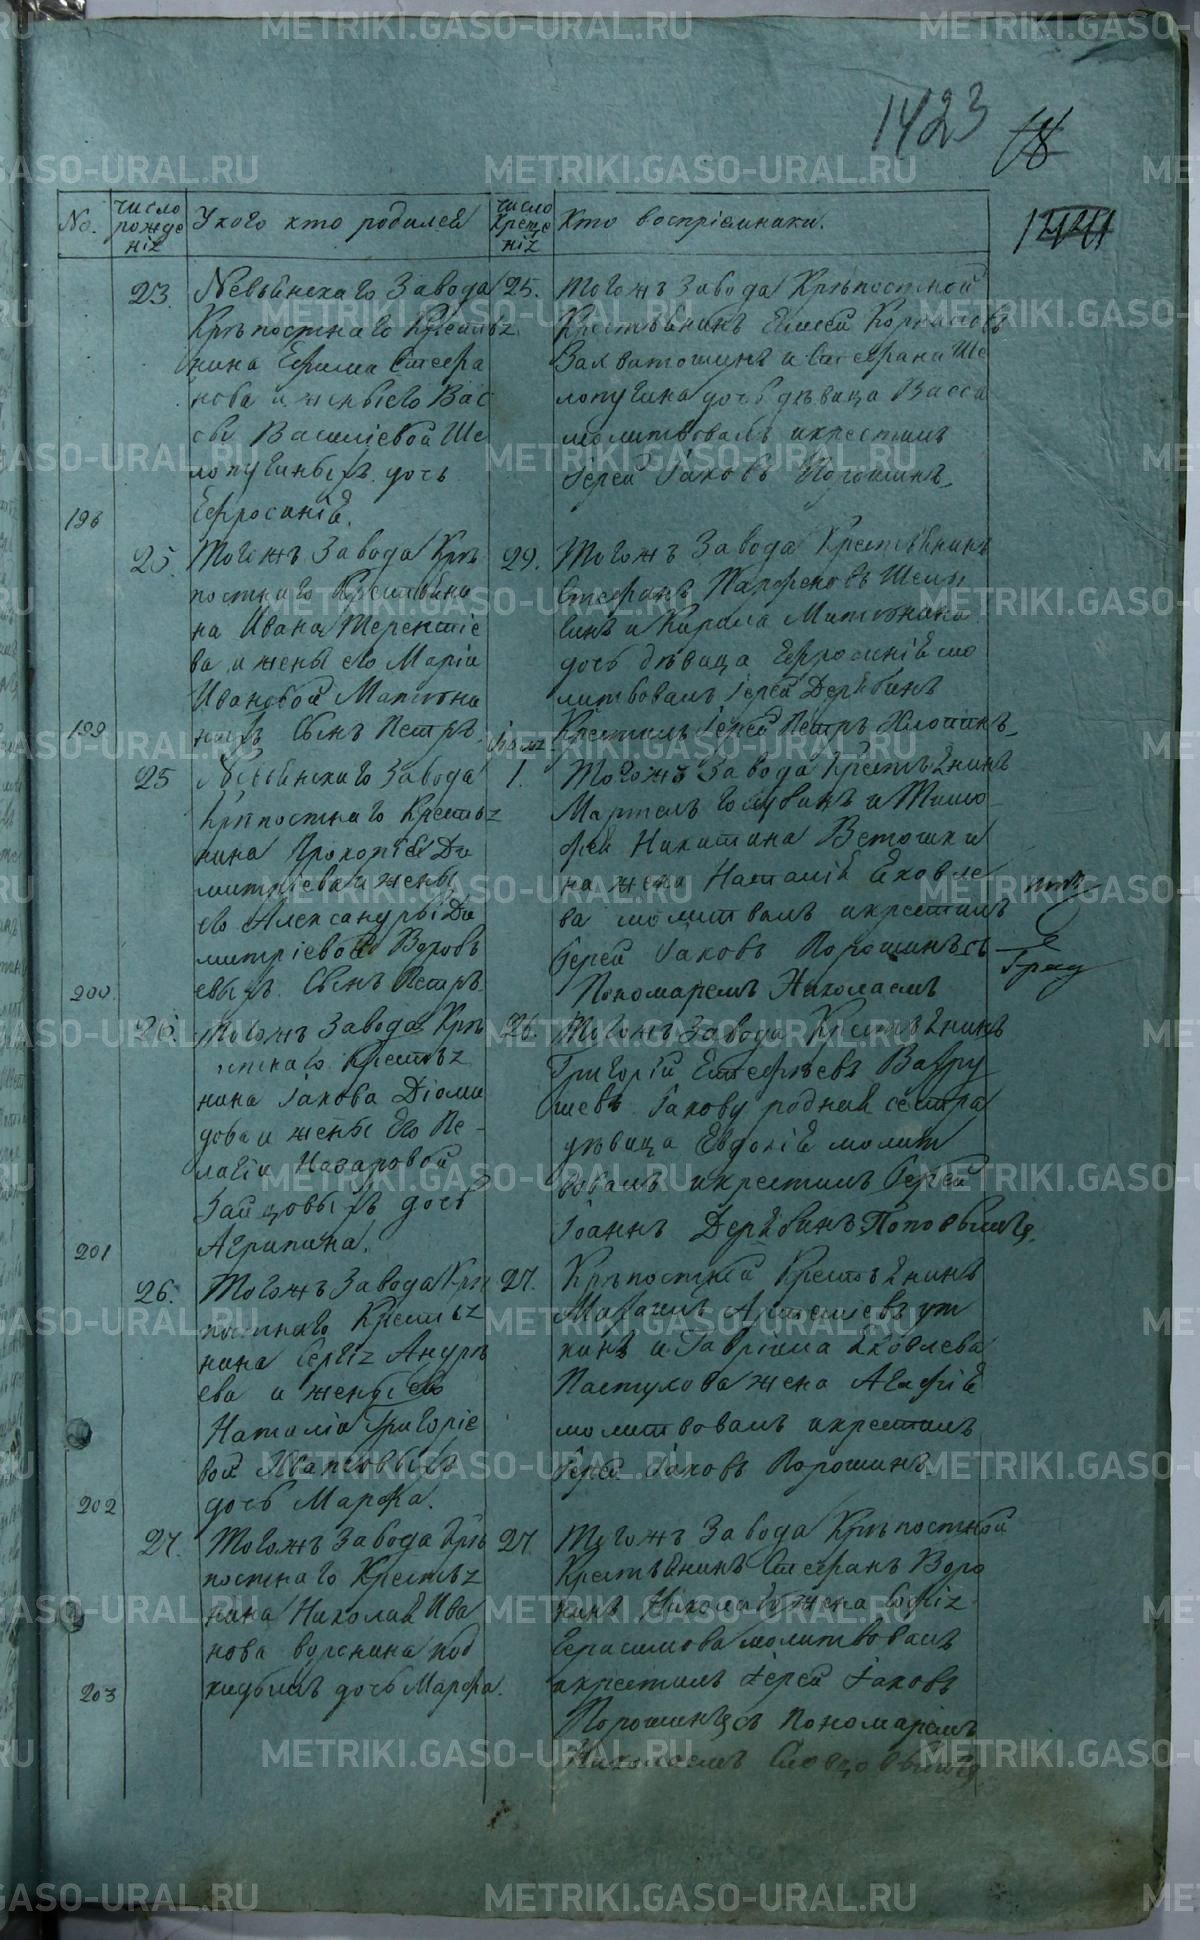 1423
18
1244
No.
число рожде нія
У кого кто родился
число креще нія
Кто воспріемники.
198
23.
Невьянскаго Завода
Крѣпостнаго Крестья
нина Ефима Стефа
нова и жены его Вас
сы Василіевой Ше
лопугиныхъ дочь
Ефросинія.
25.
Тогожъ Завода Крѣпостной
Крестьянинъ Елисей
и Стефана Ше
лопугина дочь дѣвица Васса
молитвовалъ и крестилъ
Іерей Іаковъ Порошинъ.
199
25.
Тогожъ Завода Крѣ
постнаго Крестьяни
на Ивана Терентіе
ва и жены его Маріи
Ивановой
Сынъ Петръ
29.
Тогожъ Завода Крестьянинъ
Стефанъ Парфеновъ
и Карпа
дочь дѣвица Ефросинія мо
литвовалъ Іерей Дерябинъ
Крестилъ Іерей Петръ Хлопинъ
200.
25
Невьянскаго Завода
Крѣпостнаго Крестья
нина Прокопія Ди
митріева и жены
его Александры Ди
митріевой
Сынъ Петръ.
1.
Тогожъ Завода Крестьянинъ
и Тимо
фея Никитина Ветошки
на жена Наталія Яковле
ва молитвалъ и крестилъ
Іерей Іаковъ Порошинъ съ
Пономаремъ Николаемъ
201
26.
Тогожъ Завода Крѣ
постнаго Крестья
нина Іакова Діоми
дова и жены Его Пе
лагіи Назаровой
Зайцовыхъ дочь
Агрипина.
26.
Тогожъ Завода Крестьянинъ
Григорій Вавру
шевъ Іакову родная сестра
дѣвица Евдокія молит
вовалъ и крестилъ Іерей
Іоаннъ Дерябинъ Поповымъ.
202
26.
Тогожъ Завода Крѣ
постнаго Крестья
нина Сергія Андрѣ
ева и жены его
Наталіи Григоріе
вой
дочь Марфа.
27.
Крѣпостной Крестьянинъ
Ут
кинъ и Гавріила Яковлева
Пастухова жена Агафія
молитвовалъ и крестилъ
Іерей Іаковъ Порошинъ
203
27.
Тогожъ Завода Крѣ
постнаго Крестья
нина Николая Ива
нова под
кидышъ дочь Марфа.
27
Тогожъ Завода Крѣпостной
Крестьянинъ Стефанъ Воро
нинъ жена Софія
Герасимова молитвовалъ
и крестилъ Іерей Іаковъ
Порошинъ съ Пономаремъ
Николаемъ Словцовымъ
METRIKI.GASO-URAL.RU